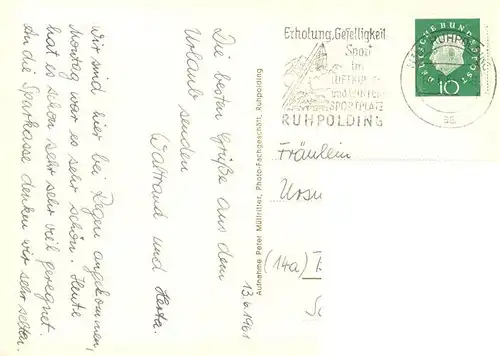 Wir sind hier bei Regen angekommen,
Montag war es sehr schön. Heute
hat es schon sehr sehr viel geregnet.
An die Sparkasse denken wir sehr selten.
Die besten Grüße aus dem
Urlaub senden
Waltraud und Herta.
13.6.1961
Aufnahme Peter Müllritter, Photo-Fachgeschäft, Ruhpolding
Erholung, Geselligkeit
Sport
im
LUFTKUR-
und WINTER-
SPORTPLATZ
RUHPOLDING
RUHPOLDING
DEUTSCHE BUNDESPOST
10
Fräulein
Ursu
(14a)